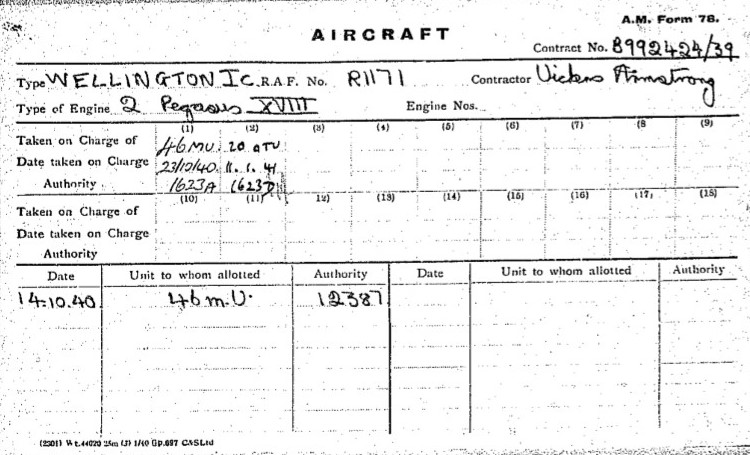 A.M. Form 78.
AIRCRAFT
Contract No. B992424/39
Type WELLINGTON IC. R.A.F. No. R1171 Contractor Vickers Armstrong
Type of Engine 2 Pegasus XVIII Engine Nos.
(1) (2) (3) (4) (5) (6) (7) (8 (9)
Taken on Charge of 46 MU. 20 OTU
Date taken on Charge 11. 1. 41
Authority 1623A 1623D
(10) (11) 12) (13) (14) (15) (16) (17) (18)
Taken on Charge of
Date taken on Charge
Authority
Date Unit to whom allotted Authority Date Unit to whom allotted Authority
14.10.40 46 m.U. 12387
(2301) Wt.44020 25m (3) 1/40 Gp.697 C&SLtd